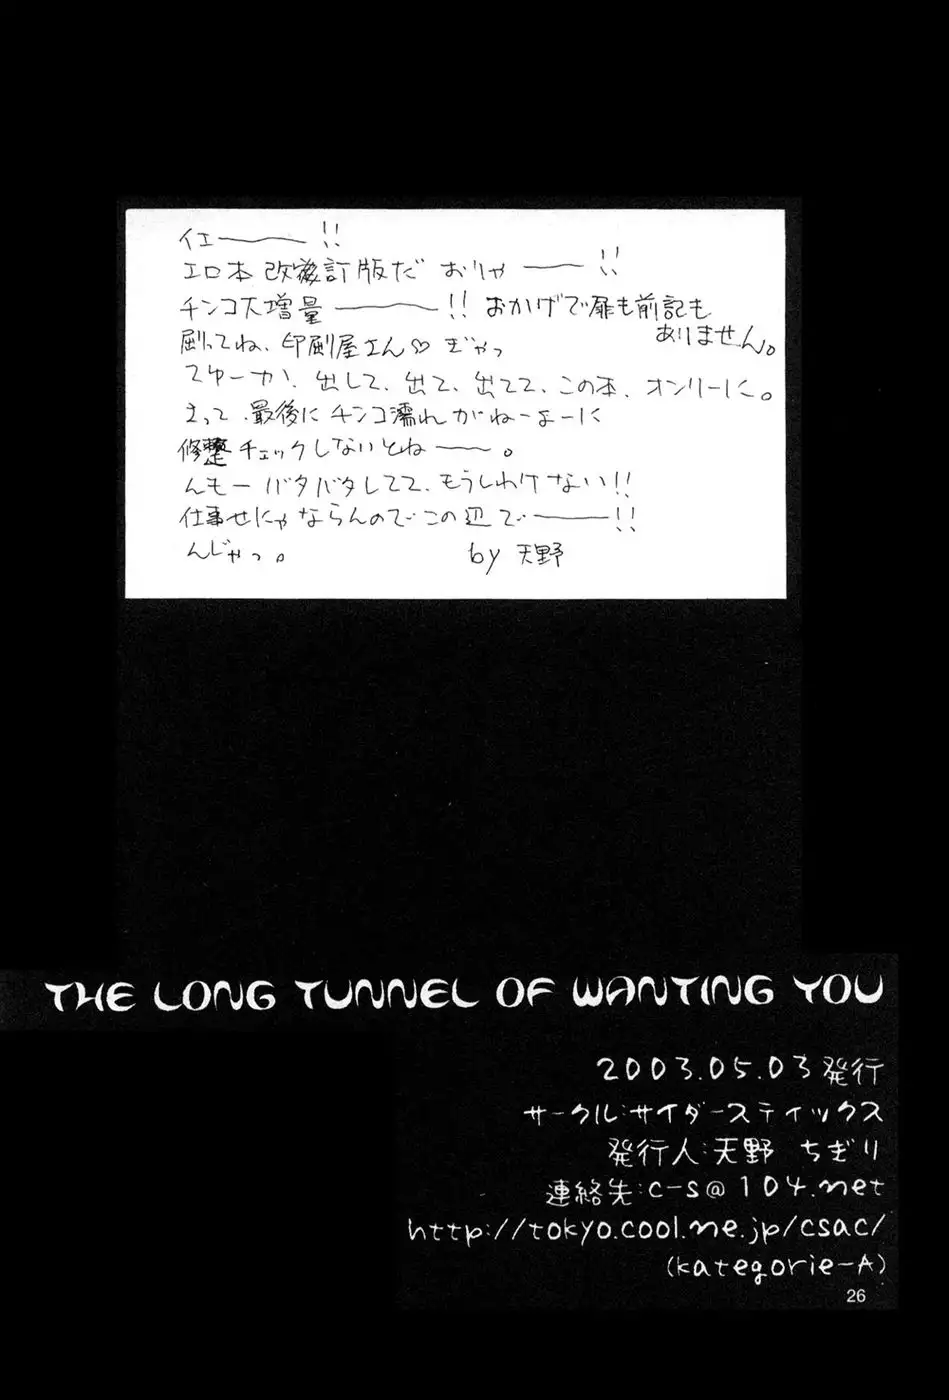 イエ――!!
エロ本改後訂版だ おりゃ――!!
チンコ大増量――!! おかげで扉も前記も
ありません。
刷ってね、印刷屋さん♡ ぎゃっ
てゆーか、出して、出て、出てて、この本、オンリーに。
さって、最後にチンコ濡れがねーよーに
修整チェックしないとね――。
んもー バタバタしてて、もうしわけない!!
仕事せにゃならんのでこの辺で――!!
んじゃっ。 by 天野
THE LONG TUNNEL OF WANTING YOU
2003.05.03発行
サークル:サイダースティックス
発行人:天野 ちぎり
連絡先:c-s@104.net
http://tokyo.cool.ne.jp/csac/
(kategorie-A)
26